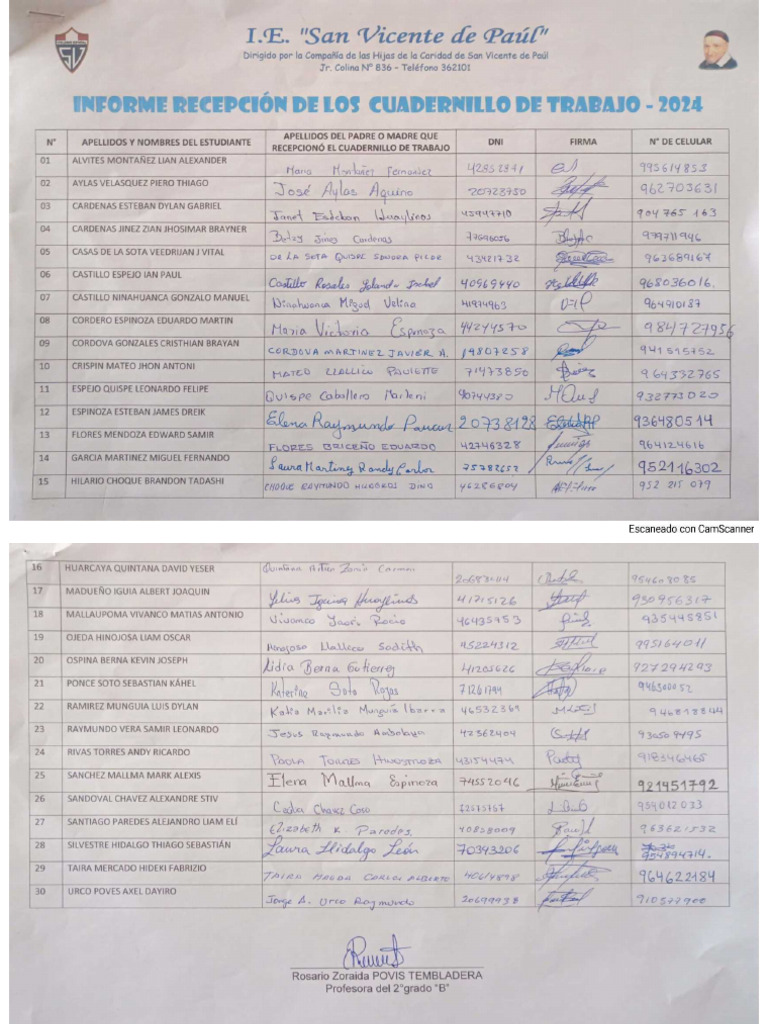 I.E. "San Vicente de Paúl"
Dirigido por la Compañía de las Hijas de la Caridad de San Vicente de Paúl
Jr. Colina N° 836 - Teléfono 362101
INFORME RECEPCIÓN DE LOS CUADERNILLO DE TRABAJO - 2024
N° APELLIDOS Y NOMBRES DEL ESTUDIANTE APELLIDOS DEL PADRE O MADRE QUE RECEPCIONÓ EL CUADERNILLO DE TRABAJO DNI FIRMA N° DE CELULAR
01 ALVITES MONTAÑEZ LIAN ALEXANDER Maria Montañez Fernandez 995614853
02 AYLAS VELASQUEZ PIERO THIAGO José Aylas Aquino 20723750 962703631
03 CARDENAS ESTEBAN DYLAN GABRIEL Janet Esteban Huaylinos 45947710 904 765 163
04 CARDENAS JINEZ ZIAN JHOSIMAR BRAYNER Betzy Jinez Cardenas 979711946
05 CASAS DE LA SOTA VEEDRIJAN J VITAL DE LA SOTA QUISPE SANDRA PILAR 43421732 963689167
06 CASTILLO ESPEJO IAN PAUL Castillo Rosales Yoland Isabel 40969440 968036016.
07 CASTILLO NINAHUANCA GONZALO MANUEL Ninahuanca Miguel Velina 41974963 964910187
08 CORDERO ESPINOZA EDUARDO MARTIN Maria Victoria Espinoza 44244570 984727956
09 CORDOVA GONZALES CRISTHIAN BRAYAN CORDOVA MARTINEZ JAVIER A. 14807258 941515752
10 CRISPIN MATEO JHON ANTONI MATEO LLALLICO PAULETTE 71473850 964332765
11 ESPEJO QUISPE LEONARDO FELIPE Quispe Caballero Marleni 90744380 932773020
12 ESPINOZA ESTEBAN JAMES DREIK Elena Raymundo Paucar 20738128 936480514
13 FLORES MENDOZA EDWARD SAMIR FLORES BRICEÑO EDUARDO 42746328 964124616
14 GARCIA MARTINEZ MIGUEL FERNANDO Laura Martinez Randy Carlos 75782652 952116302
15 HILARIO CHOQUE BRANDON TADASHI CHOQUE RAYMUNDO 46286804 952 215 079
Escaneado con CamScanner
16 HUARCAYA QUINTANA DAVID YESER Quintana Zonia Carmen 954608085
17 MADUEÑO IGUIA ALBERT JOAQUIN Iguia Huaylinos 41715126 930956317
18 MALLAUPOMA VIVANCO MATIAS ANTONIO Vivanco Rocio 46435753 935445851
19 OJEDA HINOJOSA LIAM OSCAR Hinojosa Llallico Sadith 45224312 995164011
20 OSPINA BERNA KEVIN JOSEPH Lidia Berna Gutierrez 41205626 927294293
21 PONCE SOTO SEBASTIAN KÁHEL Katerine Soto Rojas 71261794 946300052
22 RAMIREZ MUNGUIA LUIS DYLAN Katia Marilia Munguia Ibarra 46532369 946818844
23 RAYMUNDO VERA SAMIR LEONARDO Jesus Raymundo 42362404 930509495
24 RIVAS TORRES ANDY RICARDO PAOLA TORRES HINOSTROZA 43154474 918346465
25 SANCHEZ MALLMA MARK ALEXIS Elena Mallma Espinoza 74552046 921451792
26 SANDOVAL CHAVEZ ALEXANDRE STIV Chavez 954012033
27 SANTIAGO PAREDES ALEJANDRO LIAM ELÍ Elizabeth K. Paredes. 40828009 963621532
28 SILVESTRE HIDALGO THIAGO SEBASTIÁN Laura Hidalgo León 70343206 954894714.
29 TAIRA MERCADO HIDEKI FABRIZIO CARLOS ALBERTO 964622184
30 URCO POVES AXEL DAYIRO Jorge A. Urco Raymundo 20699938 910577900
Rosario Zoraida POVIS TEMBLADERA
Profesora del 2°grado "B"